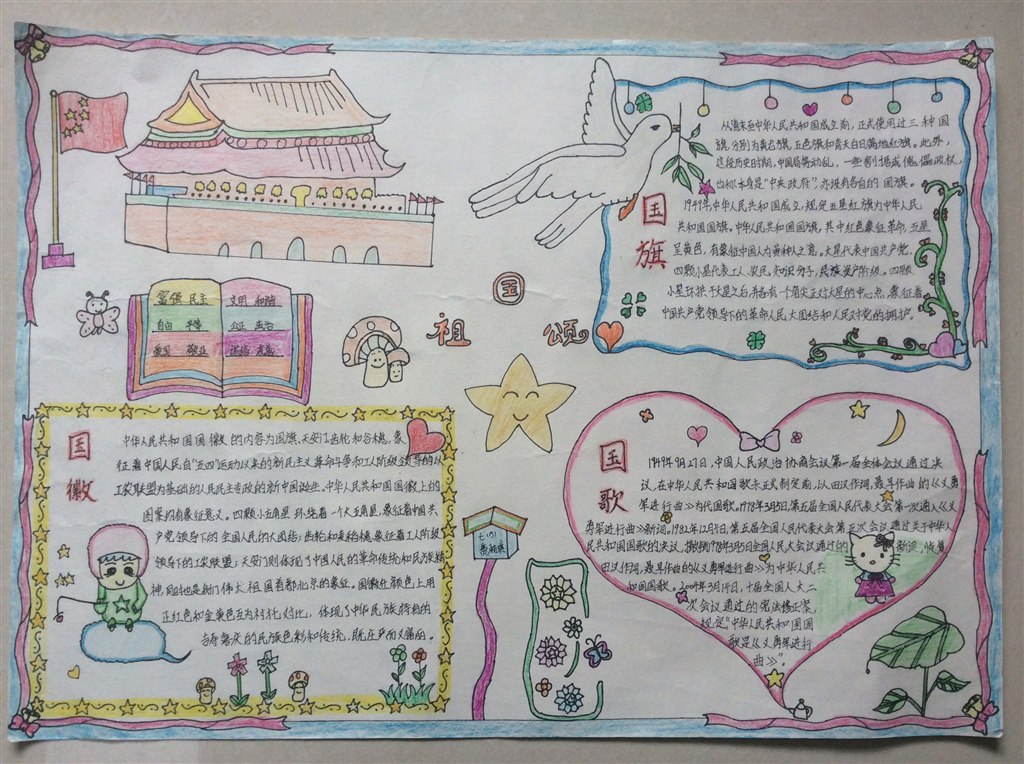 富强 民主 文明 和谐
自由 平等 公正 法治
爱国 敬业 诚信 友善
祖国颂
国旗
从清末至中华人民共和国成立前,正式使用过三种国
旗,分别为黄龙旗,五色旗和青天白日满地红旗。此外,
这段历史时期,中国局势动乱,一些割据或傀儡政权,
自称本身是“中央政府”,亦设有各自的国旗。
1949年,中华人民共和国成立,规定五星红旗为中华人民
共和国国旗。中华人民共和国国旗,其中红色象征革命,五星
呈黄色,有象征中国人为黄种人之意。大星代表中国共产党,
四颗小星代表工人、农民、知识分子,民族资产阶级。四颗
小星环拱于大星之右,并各有一个角尖正对大星的中心点,象征着
中国共产党领导下的革命人民大团结和人民对党的拥护。
国徽
中华人民共和国国徽的内容为国旗、天安门、齿轮和谷穗,象
征着中国人民自“五四”运动以来的新民主义革命斗争和工人阶级领导的以
工农联盟为基础的人民民主专政的新中国诞生。中华人民共和国国徽上的
图案均有象征意义。四颗小五角星环绕着一个大五角星,象征着中国共
产党领导下的全国人民的大团结;齿轮和麦稻穗,象征着工人阶级
领导下的工农联盟;天安门则体现了中国人民的革命传统和民族精
神,同时也是我们伟大祖国首都北京的象征。国徽在颜色上用
正红色和金黄色互为衬托对比,体现了中华民族特有的
吉寿喜庆的民族色彩和传统,既庄严而又富丽。
七(9)
国歌
1949年9月27日,中国人民政治协商会议第一届全体会议通过决
议,在中华人民共和国国歌未正式制定前,以田汉作词,聂耳作曲的《义勇
军进行曲》为代国歌。1978年3月5日,第五届全国人民代表大会第一次通入《义
勇军进行曲》新词。1982年12月4日,第五届全国人民代表大会第五次会议通过关于中华人
民共和国国歌的决议,撤销1978年3月5日全国人民大会议通过的新词,恢复
田汉作词,聂耳作曲的《义勇军进行曲》为中华人民共
和国国歌。2004年3月14日,十届全国人大二
次会议通过的宪法修正案,
规定“中华人民共和国国
歌是《义勇军进行
曲》”。